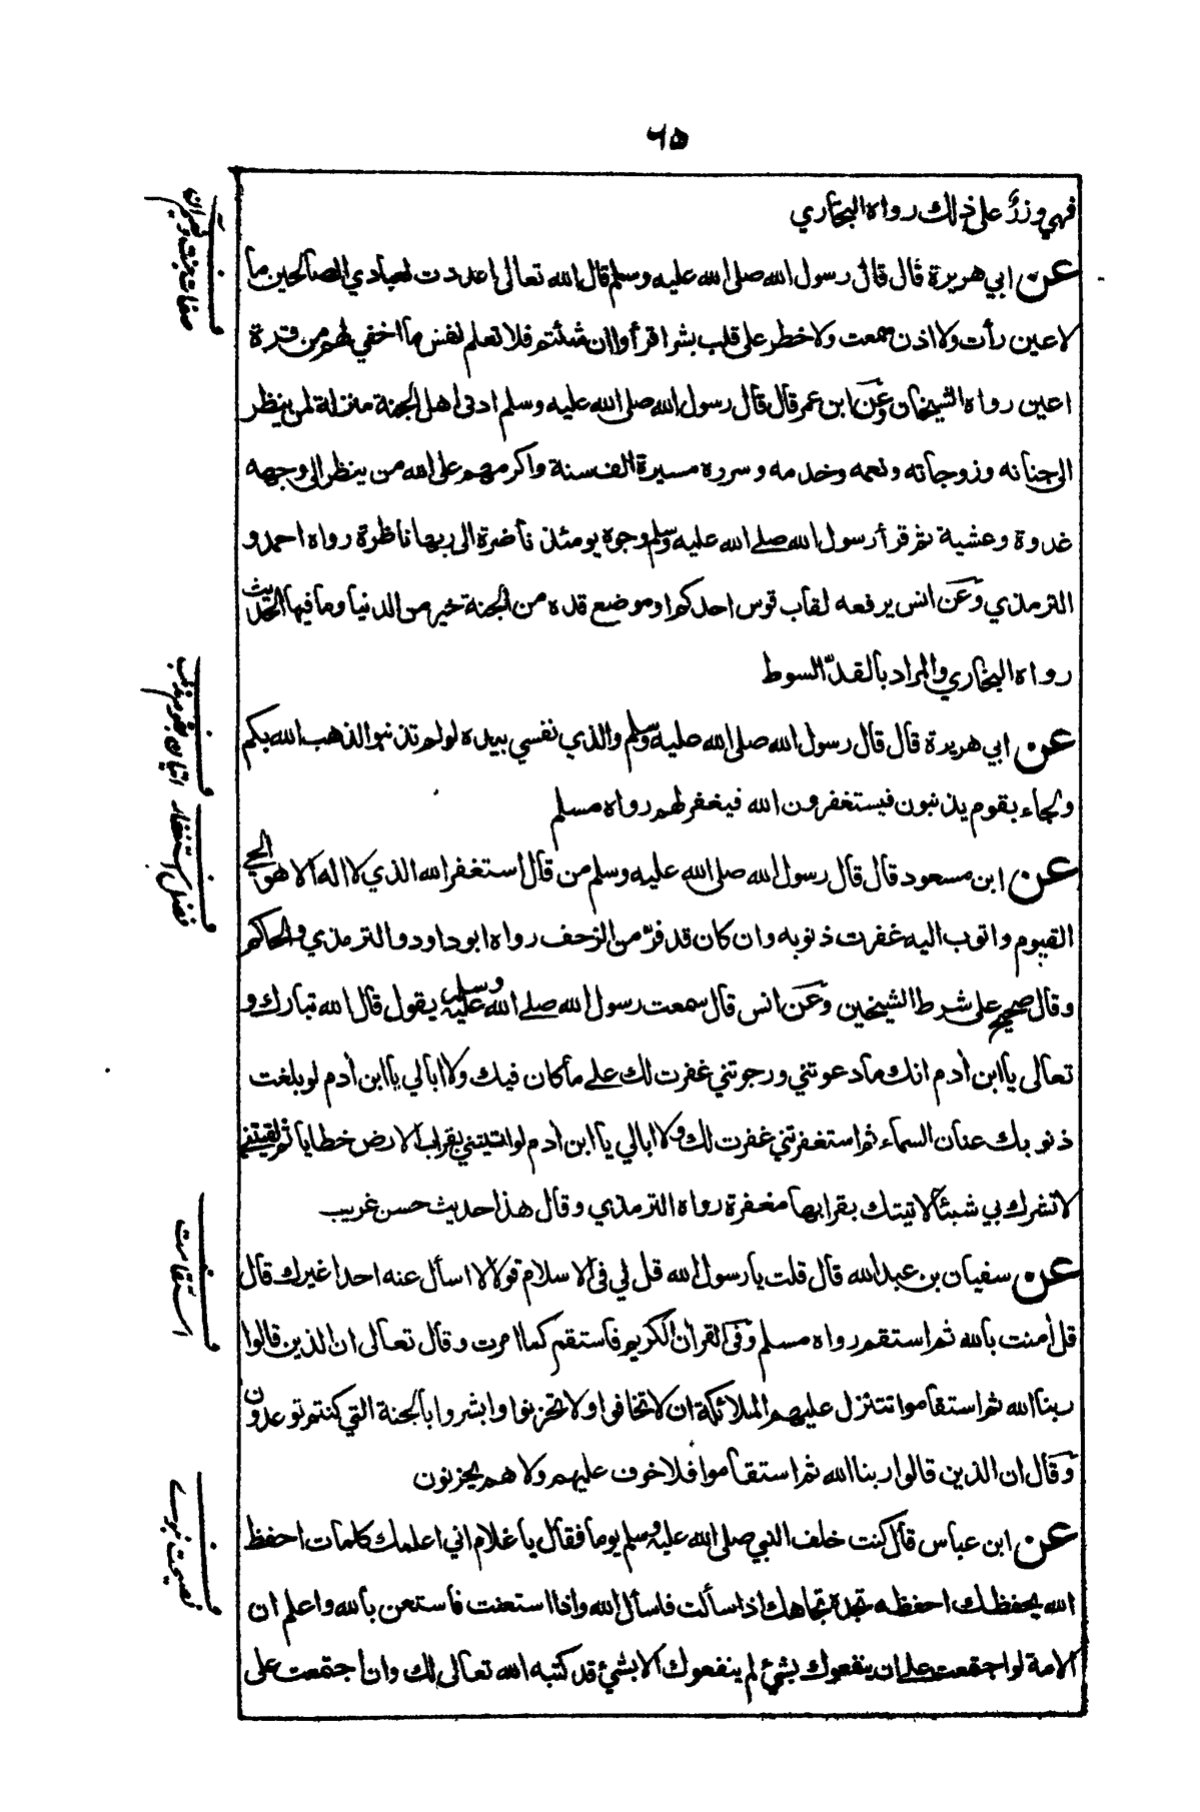 ٦٥
فهي وزر على ذلك رواه البخاري
عن ابي هريرة قال قال رسول الله صلى الله عليه وسلم قال الله تعالى اعددت لعبادي الصالحين ما
لا عين رأت ولا اذن سمعت ولا خطر على قلب بشر اقرأوا ان شئتم فلا تعلم نفس ما اخفي لهم من قرة
اعين رواه الشيخان وعن ابن عمر قال قال رسول الله صلى الله عليه وسلم ادنى اهل الجنة منزلة لمن ينظر
الى جنانه وزوجاته ونعمه وخدمه وسرره مسيرة الف سنة واكرمهم على الله من ينظر الى وجهه
غدوة وعشية ثم قرأ رسول الله صلے الله عليه وسلم وجوه يومئذ ناضرة الى ربها ناظرة رواه احمد و
الترمذي وعن انس يرفعه لقاب قوس احدكم او موضع قده من الجنة خير من الدنيا وما فيها الحديث
رواه البخاري والمراد بالقدّ السوط
عن ابي هريرة قال قال رسول الله صلى الله عليه وسلم والذي نفسي بيده لو لم تذنبوا لذهب الله بكم
ولجاء بقوم يذنبون فيستغفرون الله فيغفر لهم رواه مسلم
عن ابن مسعود قال قال رسول الله صلى الله عليه وسلم من قال استغفر الله الذي لا اله الا هو الحي
القيوم واتوب اليه غفرت ذنوبه وان كان قد فرّ من الزحف رواه ابو داود والترمذي والحاكم
وقال صحيح على شرط الشيخين وعن انس قال سمعت رسول الله صلے الله عليه وسلم يقول قال الله تبارك و
تعالى يا ابن أدم انك ما دعوتني ورجوتني غفرت لك علے ما كان فيك ولا ابالي يا ابن أدم لو بلغت
ذنوبك عنان السماء ثم استغفرتني غفرت لك ولا ابالي يا ابن أدم لو اتيتني بقراب الارض خطايا ثم لقيتني
لا تشرك بي شيئا لاتيتك بقرابها مغفرة رواه الترمذي وقال هذا حديث حسن غريب
عن سفيان بن عبد الله قال قلت يا رسول الله قل لي في الاسلام قولا لا اسأل عنه احدا غيرك قال
قل أمنت بالله ثم استقم رواه مسلم وفي القرأن الكريم فاستقم كما امرت وقال تعالى ان الذين قالوا
ربنا الله ثم استقاموا تتنزل عليهم الملائكة ان لا تخافوا ولا تحزنوا وابشروا بالجنة التي كنتم توعدون
وقال ان الذين قالوا ربنا الله ثم استقاموا فلا خوف عليهم ولا هم يحزنون
عن ابن عباس قال كنت خلف النبي صلى الله عليه وسلم يوما فقال يا غلام اني اعلمك كلمات احفظ
الله يحفظك احفظه تجده تجاهك اذا سألت فاسأل الله واذا استعنت فاستعن بالله واعلم ان
الامة لو اجتمعت علے ان ينفعوك بشئ لم ينفعوك الا بشئ قد كتبه الله تعالى لك وان اجتمعت على
ف
صفات جنت
ف
اتيان بقوم مذنب
ف
فضل استغفار
ف
استقامت
ف
نصيحت نبوے